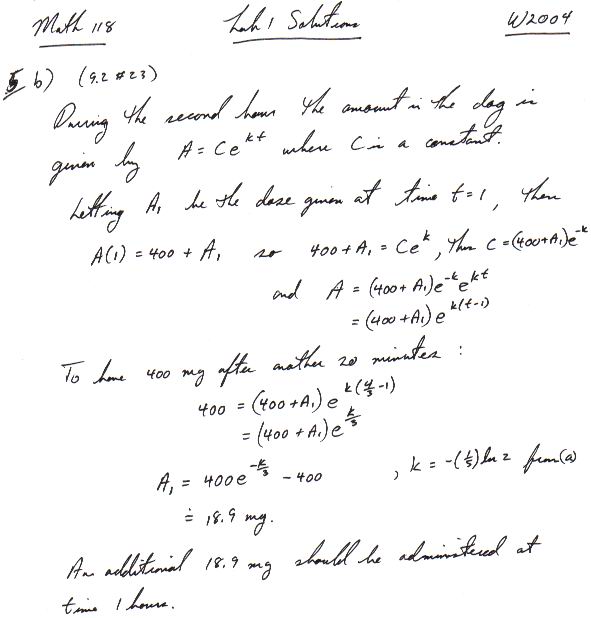 Math 118 Lab 1 Solutions W2004
5 b) (9.2 #23)
During the second hour the amount in the dog is
given by A = Ce^{kt} where C is a constant.
Letting A₁ be the dose given at time t=1, then
A(1) = 400 + A₁ so 400 + A₁ = Ce^{k}, Thus C = (400+A₁)e^{-k}
and A = (400+A₁)e^{-k}e^{kt}
= (400+A₁)e^{k(t-1)}
To have 400 mg after another 20 minutes :
400 = (400+A₁)e^{k(4/3-1)}
= (400+A₁)e^{k/3}
A₁ = 400e^{-k/3} - 400 , k = -(1/5)ln 2 from (a)
≐ 18.9 mg.
An additional 18.9 mg should be administered at
time 1 hours.